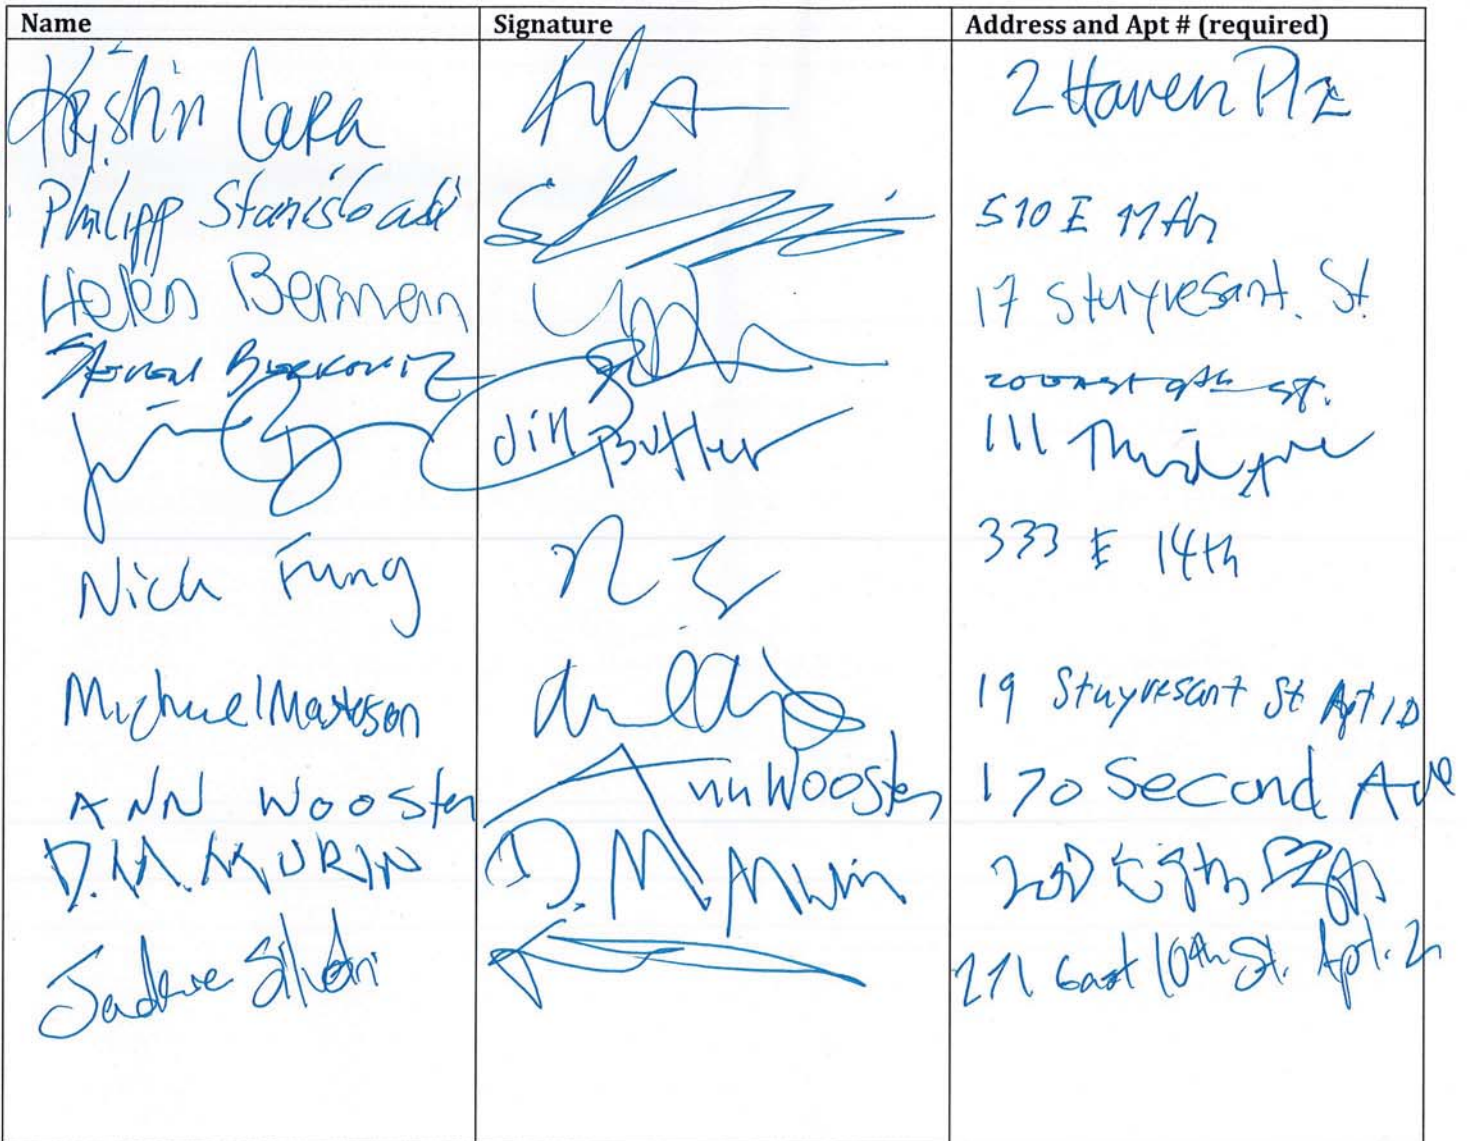 Name Signature Address and Apt # (required)
Kristin Cara 2 Haven Plz
Philipp 510 E 11th
Helen Berman 17 Stuyvesant. St
Steven Berkovitz 200 East 9th St.
Jill Butler 111 Third Ave
Nick Fung 333 E 14th
Michael Matteson 19 Stuyvesant St Apt 1D
ANN Wooster Ann Wooster 170 Second Ave
D.M. MURIN D. M. Murin
271 East 10th St. Apt. 2